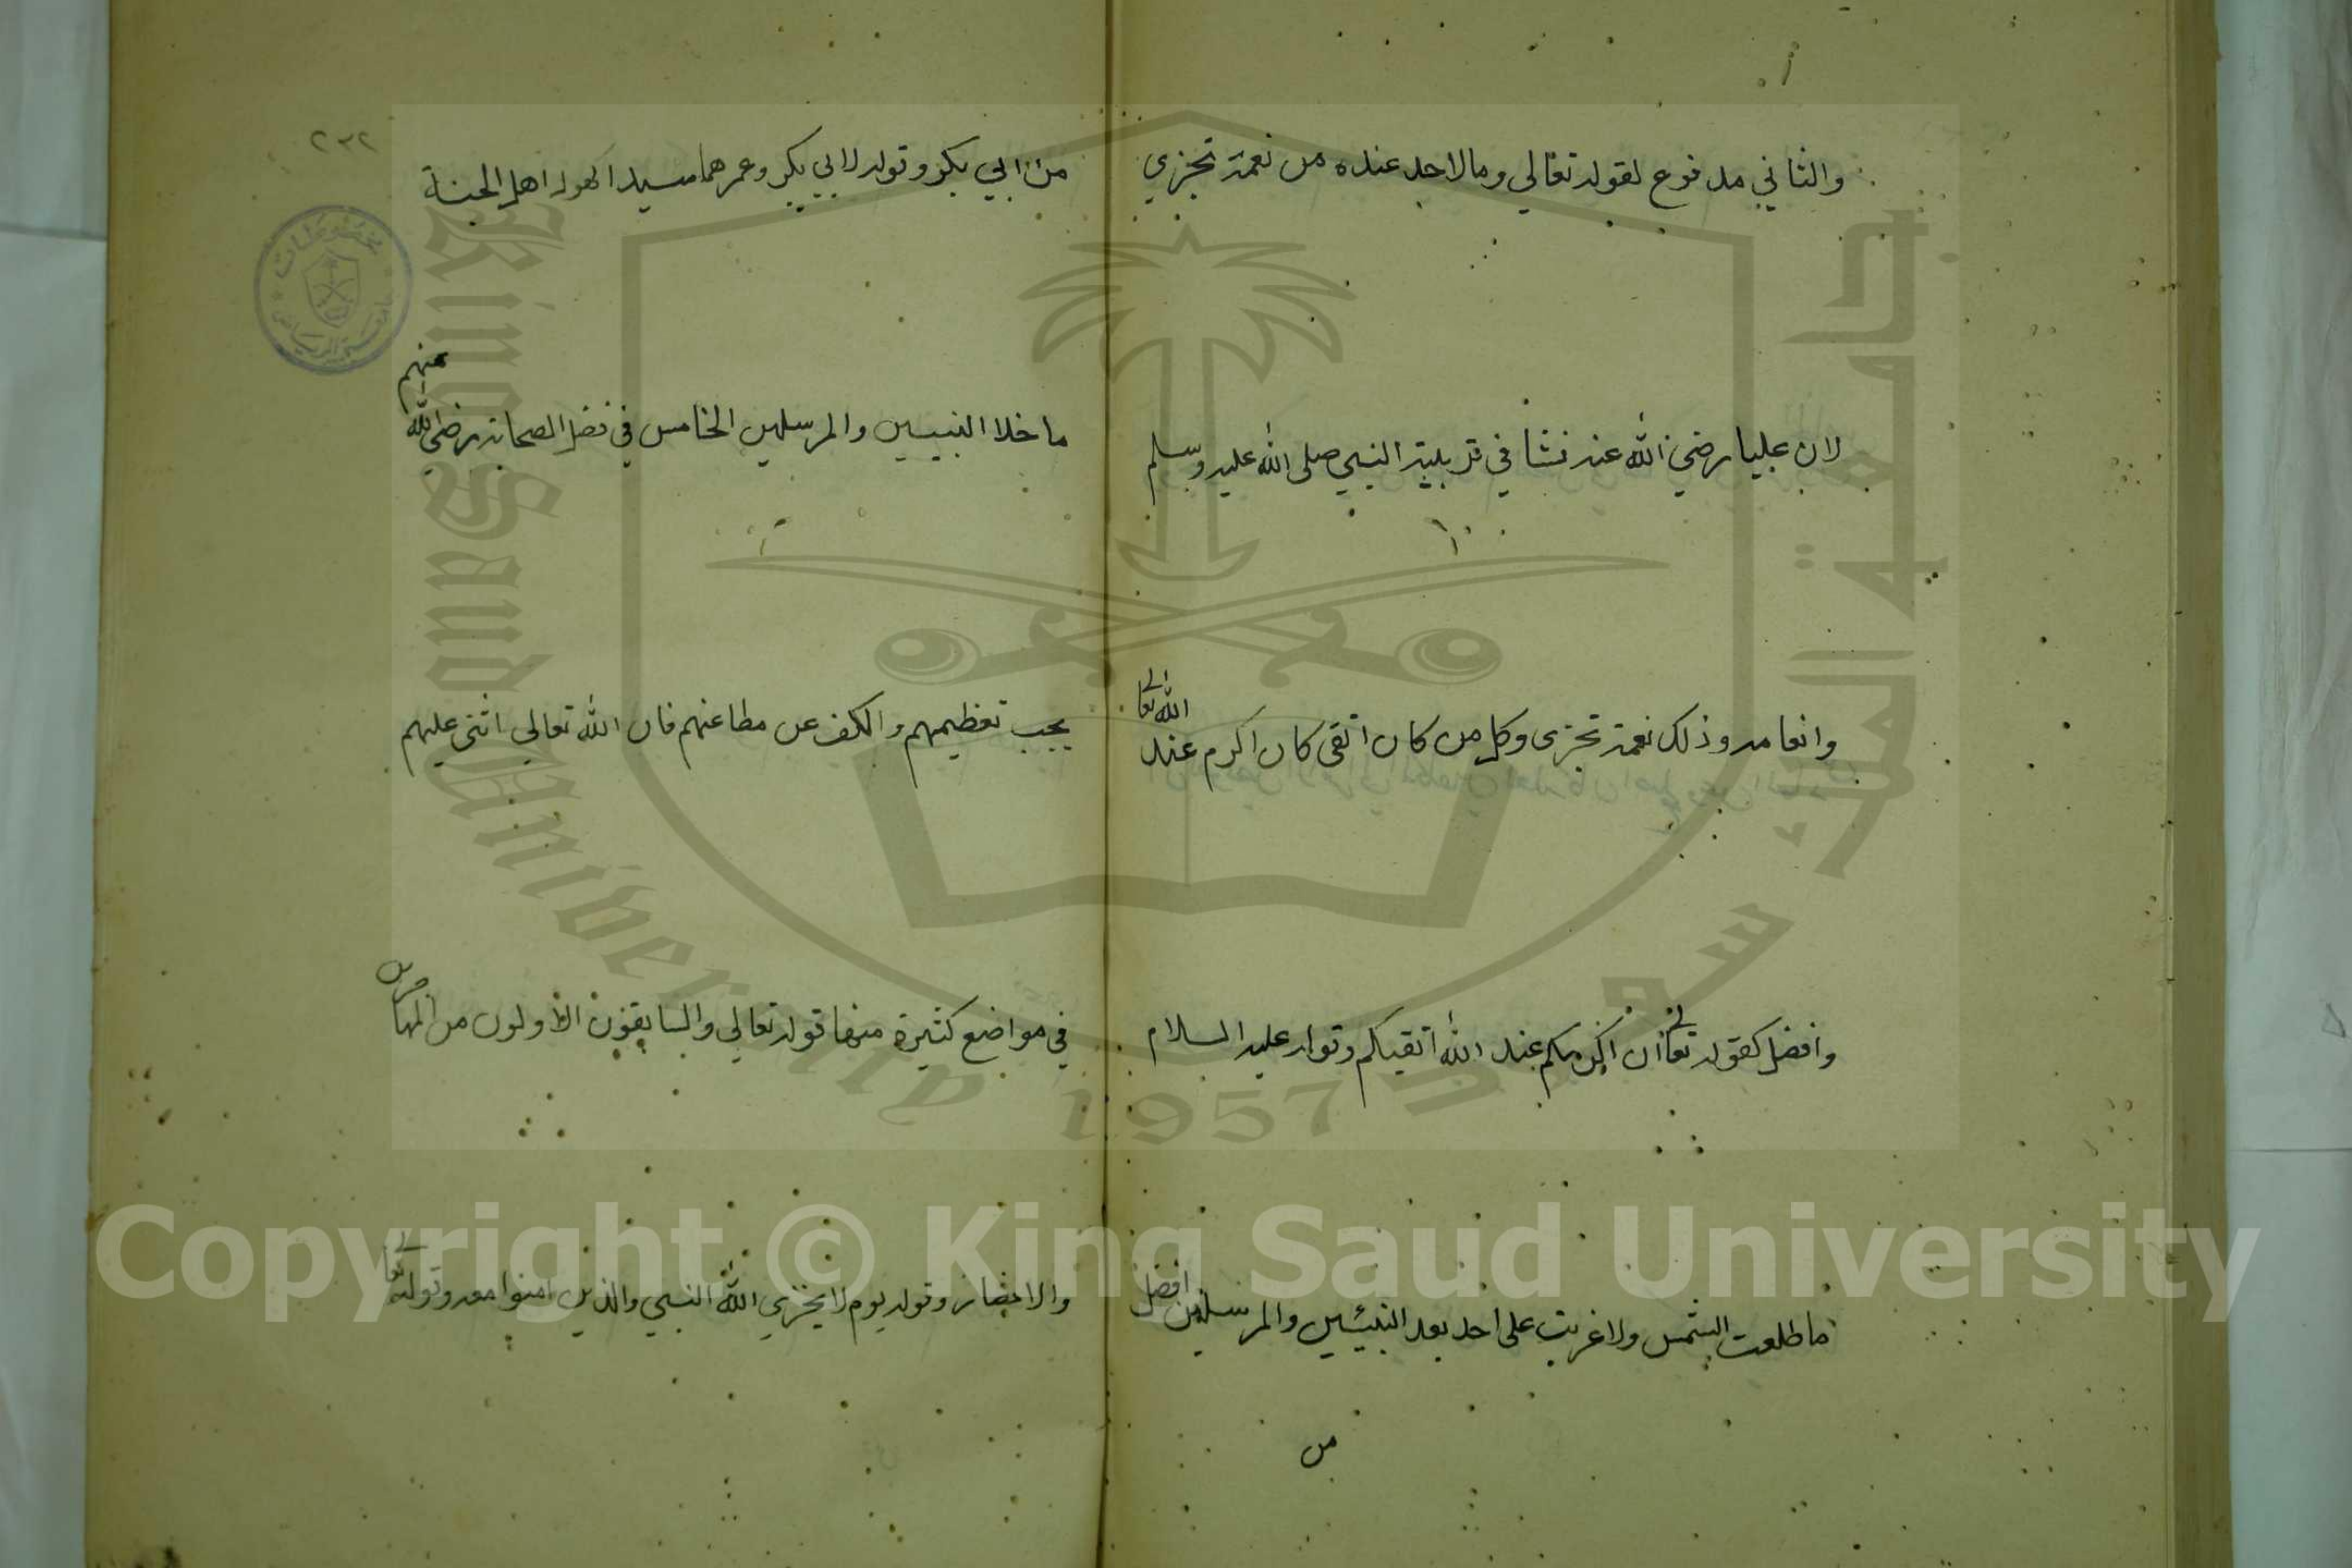 والثاني مدفوع لقوله تعالي وما لاحد عنده من نعمة تجزي
لان عليا رضي الله عنه نشا في تربية النبي صلى الله عليه وسلم
وانعامه وذلك نعمة تجزى وكل من كان اتقى كان اكرم عند الله تعالى
وافضل كقوله تعالى ان اكرمكم عند الله اتقيكم وقوله عليه السلام
ما طلعت الشمس ولا غربت على احد بعد النبيين والمرسلين افضل
من
٢٣٢
من ابي بكر وقوله لابي بكر وعمر هما سيدا كهول اهل الجنة
ما خلا النبيين والمرسلين الخامس في فضل الصحابة رضي الله عنهم
يجب تعظيمهم والكف عن مطاعنهم فان الله تعالي اثنى عليهم
في مواضع كثيرة منها قوله تعالي والسابقون الاولون من المهاجرين
والانصار وقوله يوم لا يخزي الله النبي والذين امنوا معه وقوله تعالى
مخطوطات
جامعة الرياض
King Saud University
جامعة الملك سعود
1957
Copyright © King Saud University